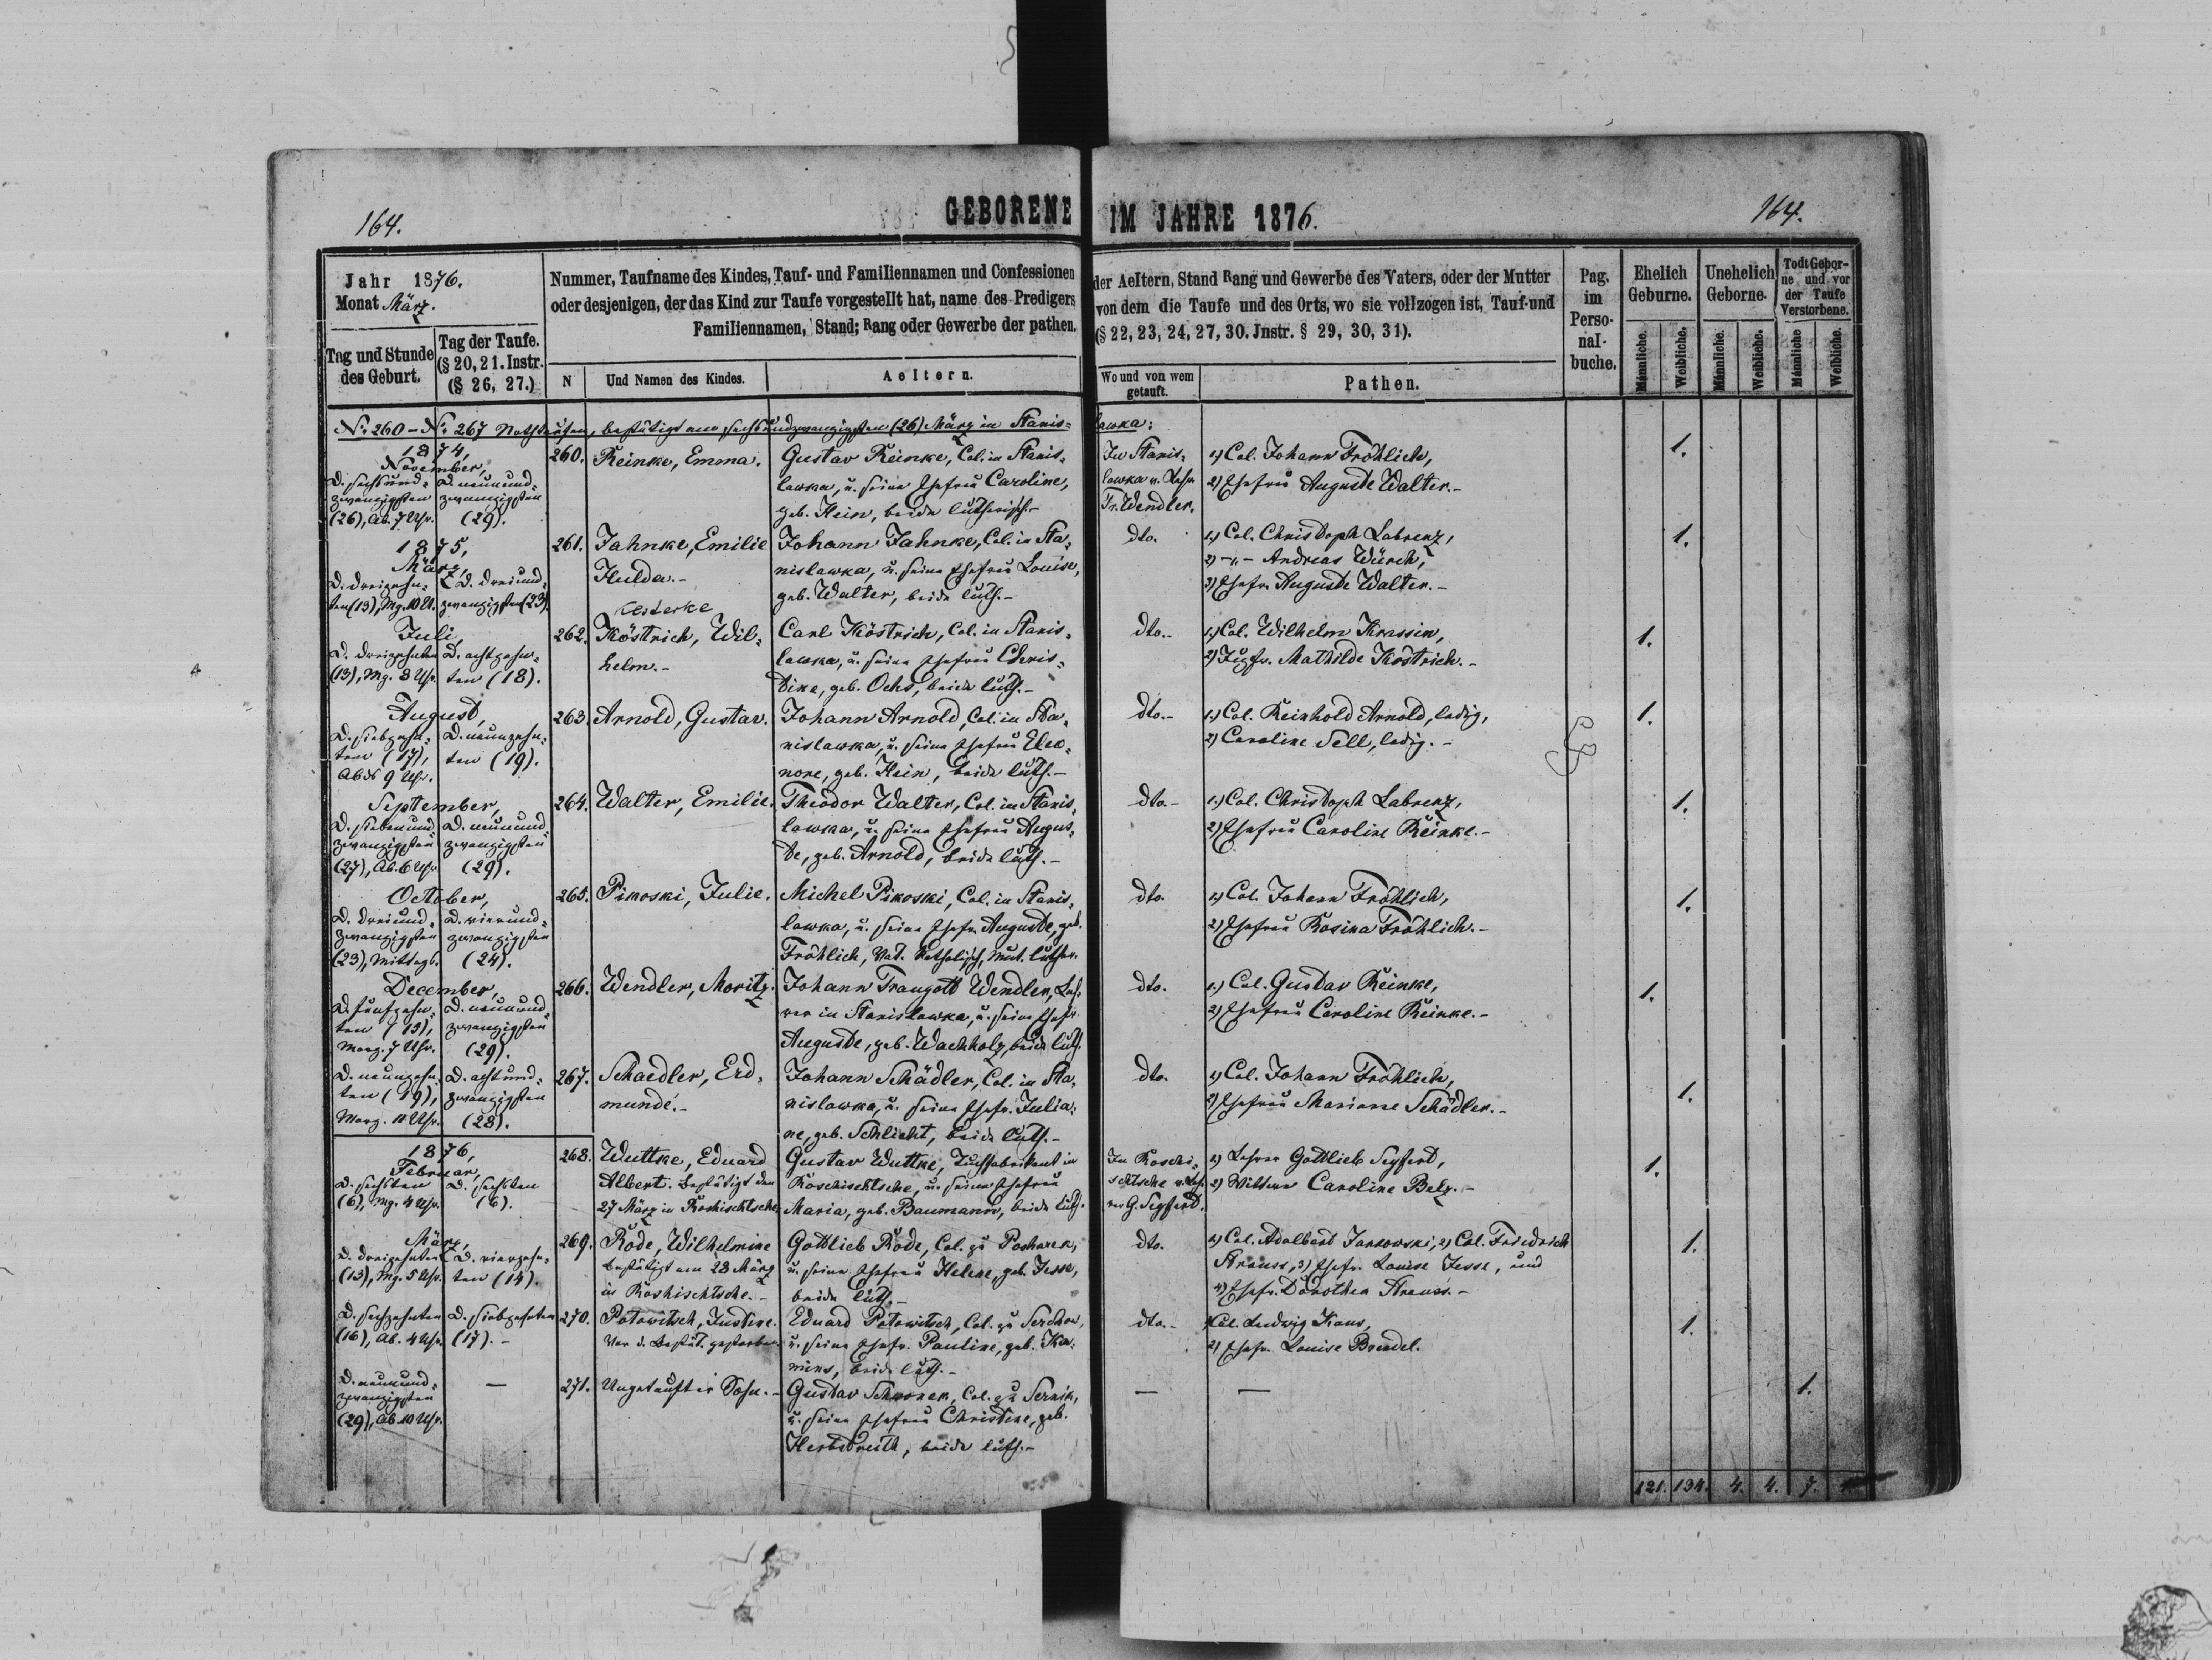 164.
GEBORENE IM JAHRE 1876.
164.
Jahr 1876.
Monat März.
Tag und Stunde des Geburt.
Tag der Taufe.
(§ 20, 21. Instr.
(§ 26, 27.)
Nummer, Taufname des Kindes, Tauf- und Familiennamen und Confessionen
oder desjenigen, der das Kind zur Taufe vorgestellt hat, name des Predigers
Familiennamen, Stand; Rang oder Gewerbe der pathen.
N
Und Namen des Kindes.
Aeltern.
der Aeltern, Stand Rang und Gewerbe des Vaters, oder der Mutter
von dem die Taufe und des Orts, wo sie vollzogen ist, Tauf-und
(§ 22, 23, 24, 27, 30. Jnstr. § 29, 30, 31).
Wo und von wem
getauft.
Pathen.
Pag.
im
Perso-
nal-
buche.
Ehelich
Geburne.
Unehelich
Geborne.
Todt Gebor-
ne und vor
der Taufe
Verstorbene.
Männliche.
Weibliche.
Männliche.
Weibliche.
Männliche
Weibliche.
No 260 – No 267 Nothtaufen, bestätigt am sechsundzwanzigsten (26) März in Stanis=
lawka:
1874,
November,
D. sechsund=
zwanzigsten
(26), Ab. 7 Uhr.
D. neunund=
zwanzigsten
(29).
260. Reinke, Emma.
Gustav Reinke, Col. in Stanis=
lawka, u. seine Ehefrau Caroline,
geb. Hein, beide lutherisch.–
In Stanis=
lawka v. Lehr.
Tr. Wendler.
1) Col. Johann Fröhlich,
2) Ehefrau Auguste Walter.–
1.
1875,
März,
D. dreizehn=
ten (13), Mg. 10 U.
D. dreiund=
zwanzigsten (23).
261. Jahnke, Emilie
Hulda.–
Johann Jahnke, Col. in Sta=
nislawka, u. seine Ehefrau Louise,
geb. Walter, beide luth.–
dto.
1.) Col. Christoph Labrenz,
2) –„– Andreas Würch,
3) Ehefr. Auguste Walter.–
1.
Juli,
D. dreizehnten
(13), Mg. 8 Uhr.
D. achtzehn=
ten (18).
262. Köstrich, Wil=
helm.–
Carl Köstrich, Col. in Stanis=
lawka, u. seine Ehefrau Chris=
tine, geb. Ochs, beide luth.–
dto.–
1.) Col. Wilhelm Krassin,
2) Jugfr. Mathilde Köstrich.–
1.
August,
D. siebzehn=
ten (17),
Abds 9 Uhr.
D. neunzehn=
ten (19).
263. Arnold, Gustav.
Johann Arnold, Col. in Sta=
nislawka, u. seine Ehefrau Eleo=
nore, geb. Hein, beide luth.–
dto.–
1.) Col. Reinhold Arnold, ledig,
2) Caroline Sell, ledig.–
1.
September,
D. siebenund=
zwanzigsten
(27), Ab. 6 Uhr
D. neunund=
zwanzigsten
(29).
264. Walter, Emilie.
Theodor Walter, Col. in Stanis=
lawka, u. seine Ehefrau Augus=
te, geb. Arnold, beide luth.–
dto.–
1.) Col. Christoph Labrenz,
2) Ehefrau Caroline Reinke.–
1.
October,
D. dreiund=
zwanzigsten
(23), Mittags.
D. vierund=
zwanzigsten
(24).
265. Pikoski, Julie.
Michel Pikoski, Col. in Stanis=
lawka, u. seine Ehefr. Auguste, geb.
Fröhlich, Vat. katholisch, Mut. luther.
dto.
1) Col. Johann Fröhlich,
2) Ehefrau Rosina Fröhlich.–
1.
December,
D. fünfzehn=
ten (15),
Morg. 7 Uhr.
D. neunund=
zwanzigsten
(29).
266. Wendler, Moritz.
Johann Traugott Wendler, Leh=
rer in Stanislawka, u. seine Ehefr.
Auguste, geb. Wachholz, beide luth.
dto.
1.) Col. Gustav Reinke,
2) Ehefrau Caroline Reinke.–
1.
D. neunzehn=
ten (19),
Morg. 11 Uhr.
D. achtund=
zwanzigsten
(28).
267. Schaedler, Erd=
munde.–
Johann Schädler, Col. in Sta=
nislawka, u. seine Ehefr. Julia=
ne, geb. Schlicht, beide luth.–
dto.
1) Col. Johann Fröhlich,
2) Ehefrau Marianne Schädler.–
1.
1876,
Februar,
D. sechsten
(6), Mg. 4 Uhr.
D. sechsten
(6).
268. Wuttke, Eduard
Albert. Bestätigt den
27 März in Roshischtsche.
Gustav Wuttke, Tuchfabrikant in
Roschischtsche, u. seine Ehefrau
Maria, geb. Baumann, beide luth.
In Roschi=
schtsche v. Leh=
rer G. Seyferd.
1) Lehrer Gottlieb Seyferd,
2) Wittwe Caroline Belz.–
1.
März,
D. dreizehnten
(13), Mg. 5 Uhr.
D. vierzehn=
ten (14).
269. Rode, Wilhelmine
Bestätigt am 28 März
in Roshischtsche.–
Gottlieb Rode, Col. zu Posharek,
u. seine Ehefrau Helene, geb. Jesse,
beide luth.–
dto.
1) Col. Adalbert Jankowski, 2) Col. Friedrich
Strauss, 3) Ehefr. Louise Jesse, und
4) Ehefr. Dorothea Strauss.–
1.
D. sechzehnten
(16), Ab. 4 Uhr.
D. siebzehnten
(17).–
270. Potowitsch, Justine.
Vor d. Bestät. gestorben.
Eduard Potowitsch, Col. zu Serchow,
u. seine Ehefr. Pauline, geb.
beide luth.–
dto.–
1) Col. Ludwig Kaus,
2) Ehefr. Louise Brendel.
1.
D. neunund=
zwanzigsten
(29), Ab. 10 Uhr.
–
271. Ungetaufter Sohn.–
Gustav Schworek, Col. zu Sernik,
u. seine Ehefrau Christine, geb.
Herbstreith, beide luth.–
–
–
1.
121. 134. 4. 4. 7.